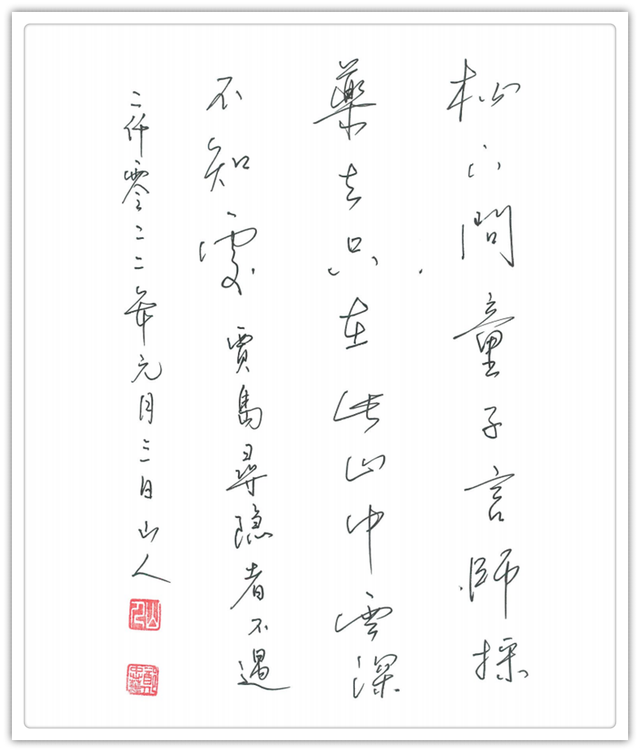 松下問童子言師採
藥去只在此山中雲深
不知處 賈島尋隐者不遇
二仟零二二年元月三日山人
山人